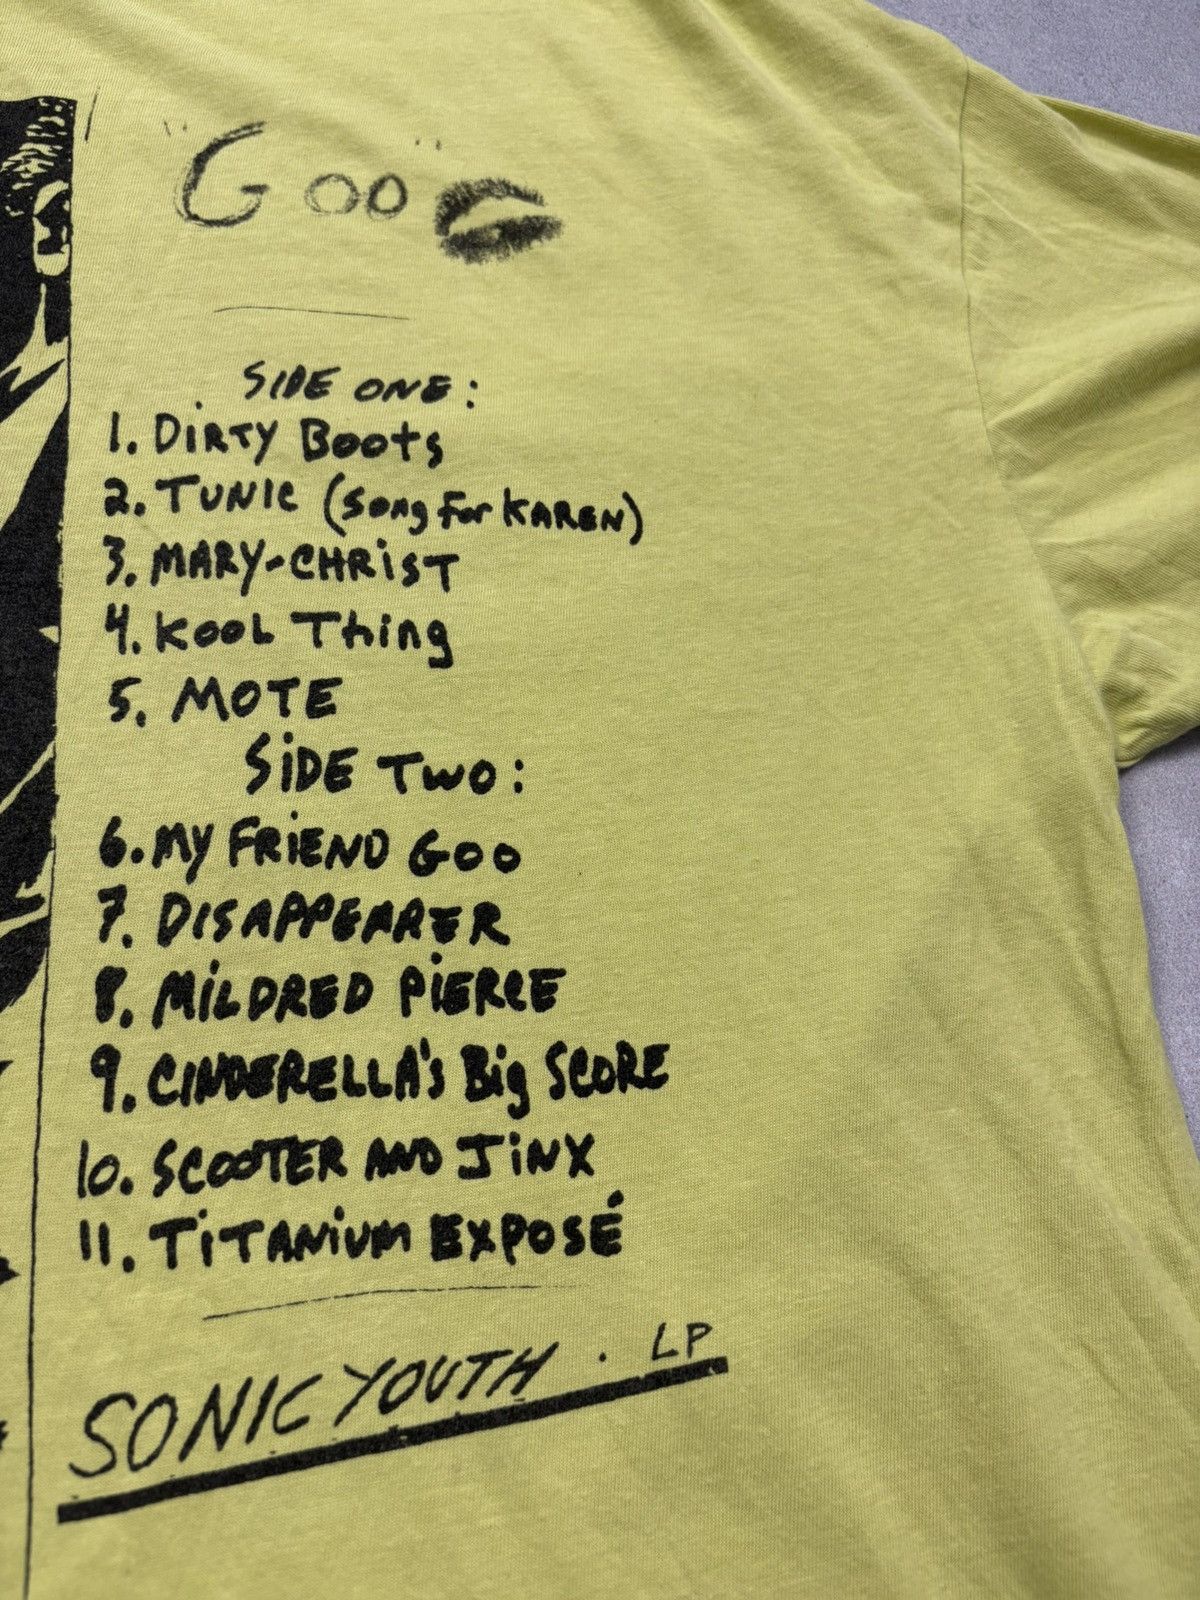 "Goo"
SIDE ONE:
1. DiRTY Boots
2. TUNIC (Song For KAREN)
3. MARY-CHRiST
4. KOOL Thing
5. MOTE
SiDE TWO:
6. MY FRiEND GOO
7. DISAPPEARER
8. MiLDRED PiERCE
9. CINDERELLA'S Big SCORE
10. SCOOTER AND JiNX
11. TiTANiUM EXPOSÉ
SONIC YOUTH . LP